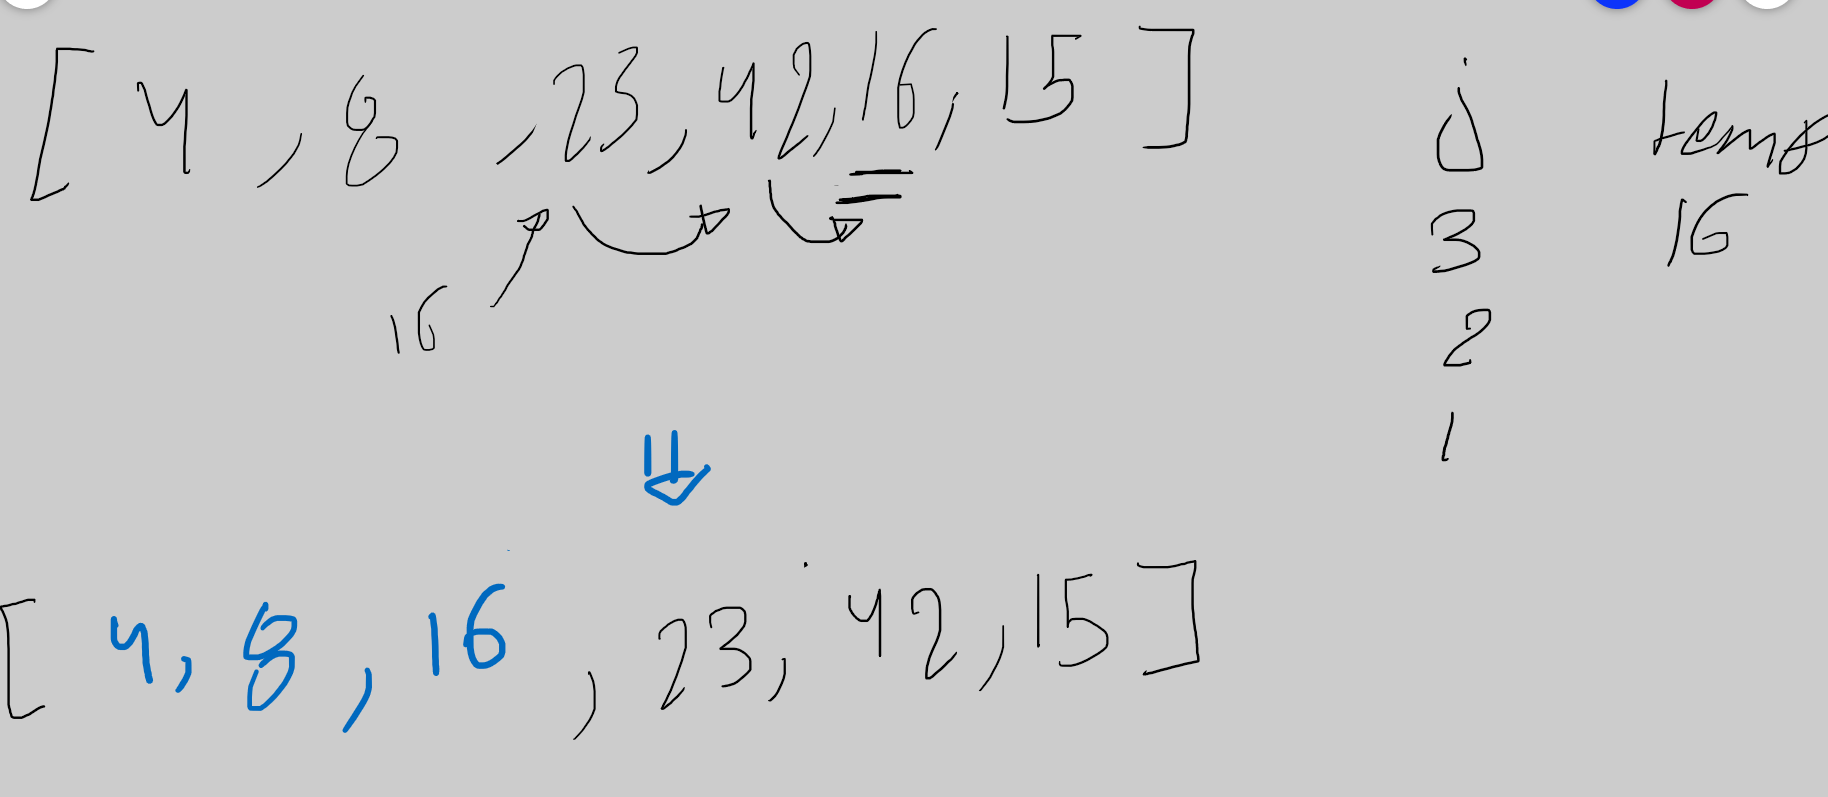 [ 4 , 8 , 23, 42, 16, 15 ] j temp
3 16
16
2
1
[ 4, 8, 16 , 23, 42, 15 ]